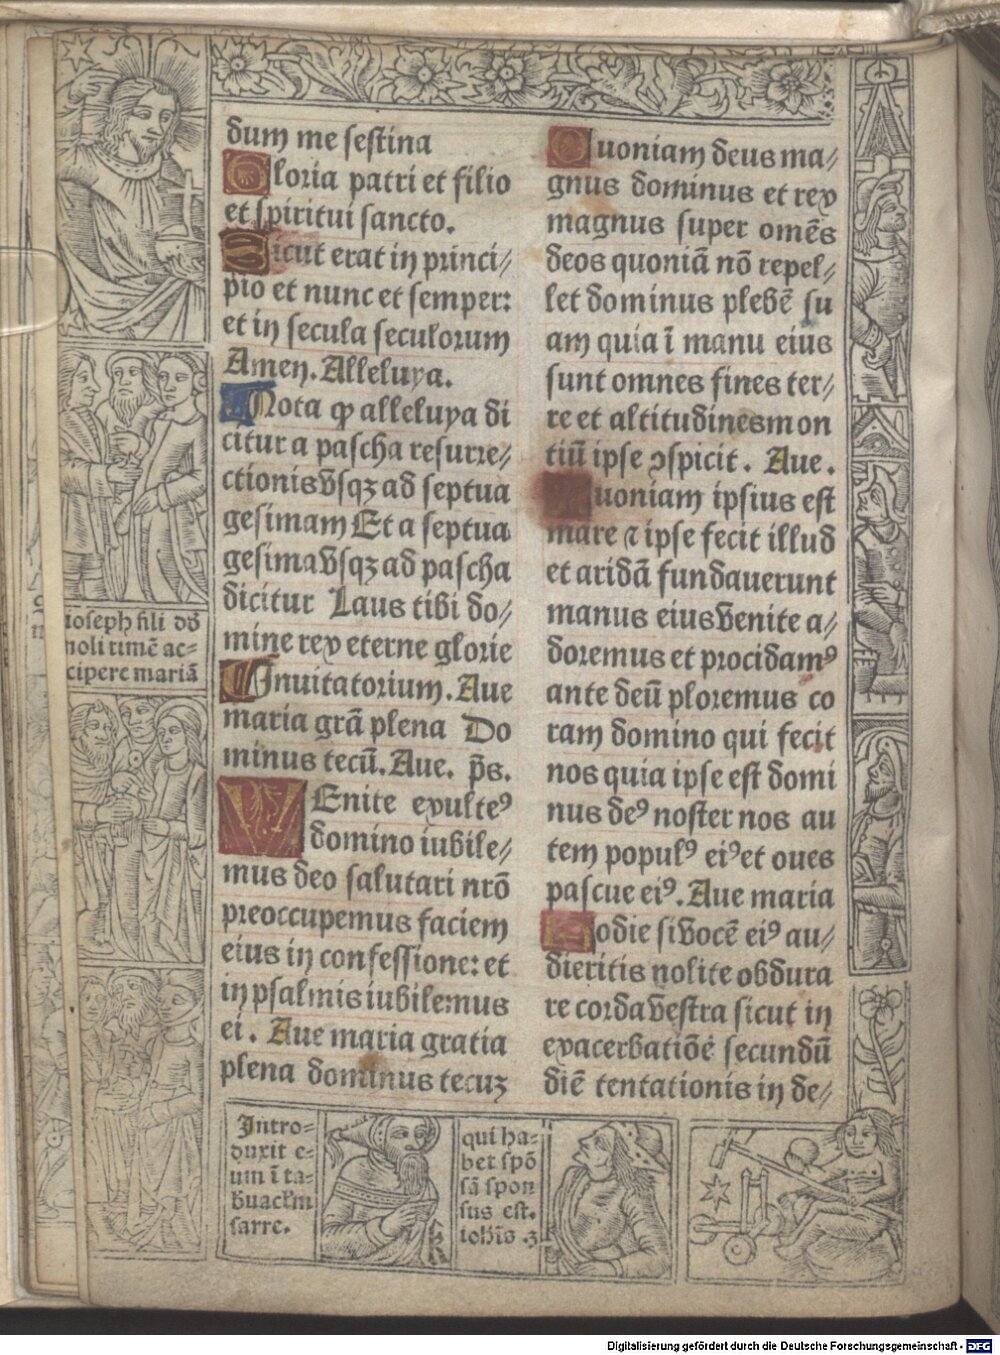 dum me festina
Gloria patri et filio
et spiritui sancto.
Sicut erat in princi/
pio et nunc et semper:
et in secula seculorum
Amen. Alleluya.
Nota ꝙ alleluya di
citur a pascha resurre/
ctionis vsqꝫ ad septua
gesimam Et a septua
gesima vsqꝫ ad pascha
dicitur Laus tibi do/
mine rex eterne glorie
Inuitatorium. Aue
maria grã plena Do
minus tecũ. Aue. p̃s.
VEnite exulteꝰ
domino iubile/
mus deo salutari nrõ
preoccupemus faciem
eius in confessione: et
in psalmis iubilemus
ei. Aue maria gratia
plena dominus tecuꝫ
Quoniam deus ma/
gnus dominus et rex
magnus super omẽs
deos quoniã nõ repel/
let dominus plebẽ su
am quia ĩ manu eius
sunt omnes fines ter/
re et altitudines mon
tiũ ipse ꝯspicit. Aue.
Quoniam ipsius est
mare ⁊ ipse fecit illud
et aridã fundauerunt
manus eius venite a/
doremus et procidamꝰ
ante deũ ploremus co
ram domino qui fecit
nos quia ipse est domi
nus deꝰ noster nos au
tem populꝰ eiꝰ et oues
pascue eiꝰ. Aue maria
Hodie si vocẽ eiꝰ au/
dieritis nolite obdura
re corda vestra sicut in
exacerbatiõe secundũ
diẽ tentationis in de/
ioseph fili dd
noli timẽ ac=
cipere mariã
Intro=
duxit e=
um ĩ ta=
buacłm
sarre.
qui ha=
bet spõ
sã spon
sus est.
iohĩs .3
Digitalisierung gefördert durch die Deutsche Forschungsgemeinschaft - DFG